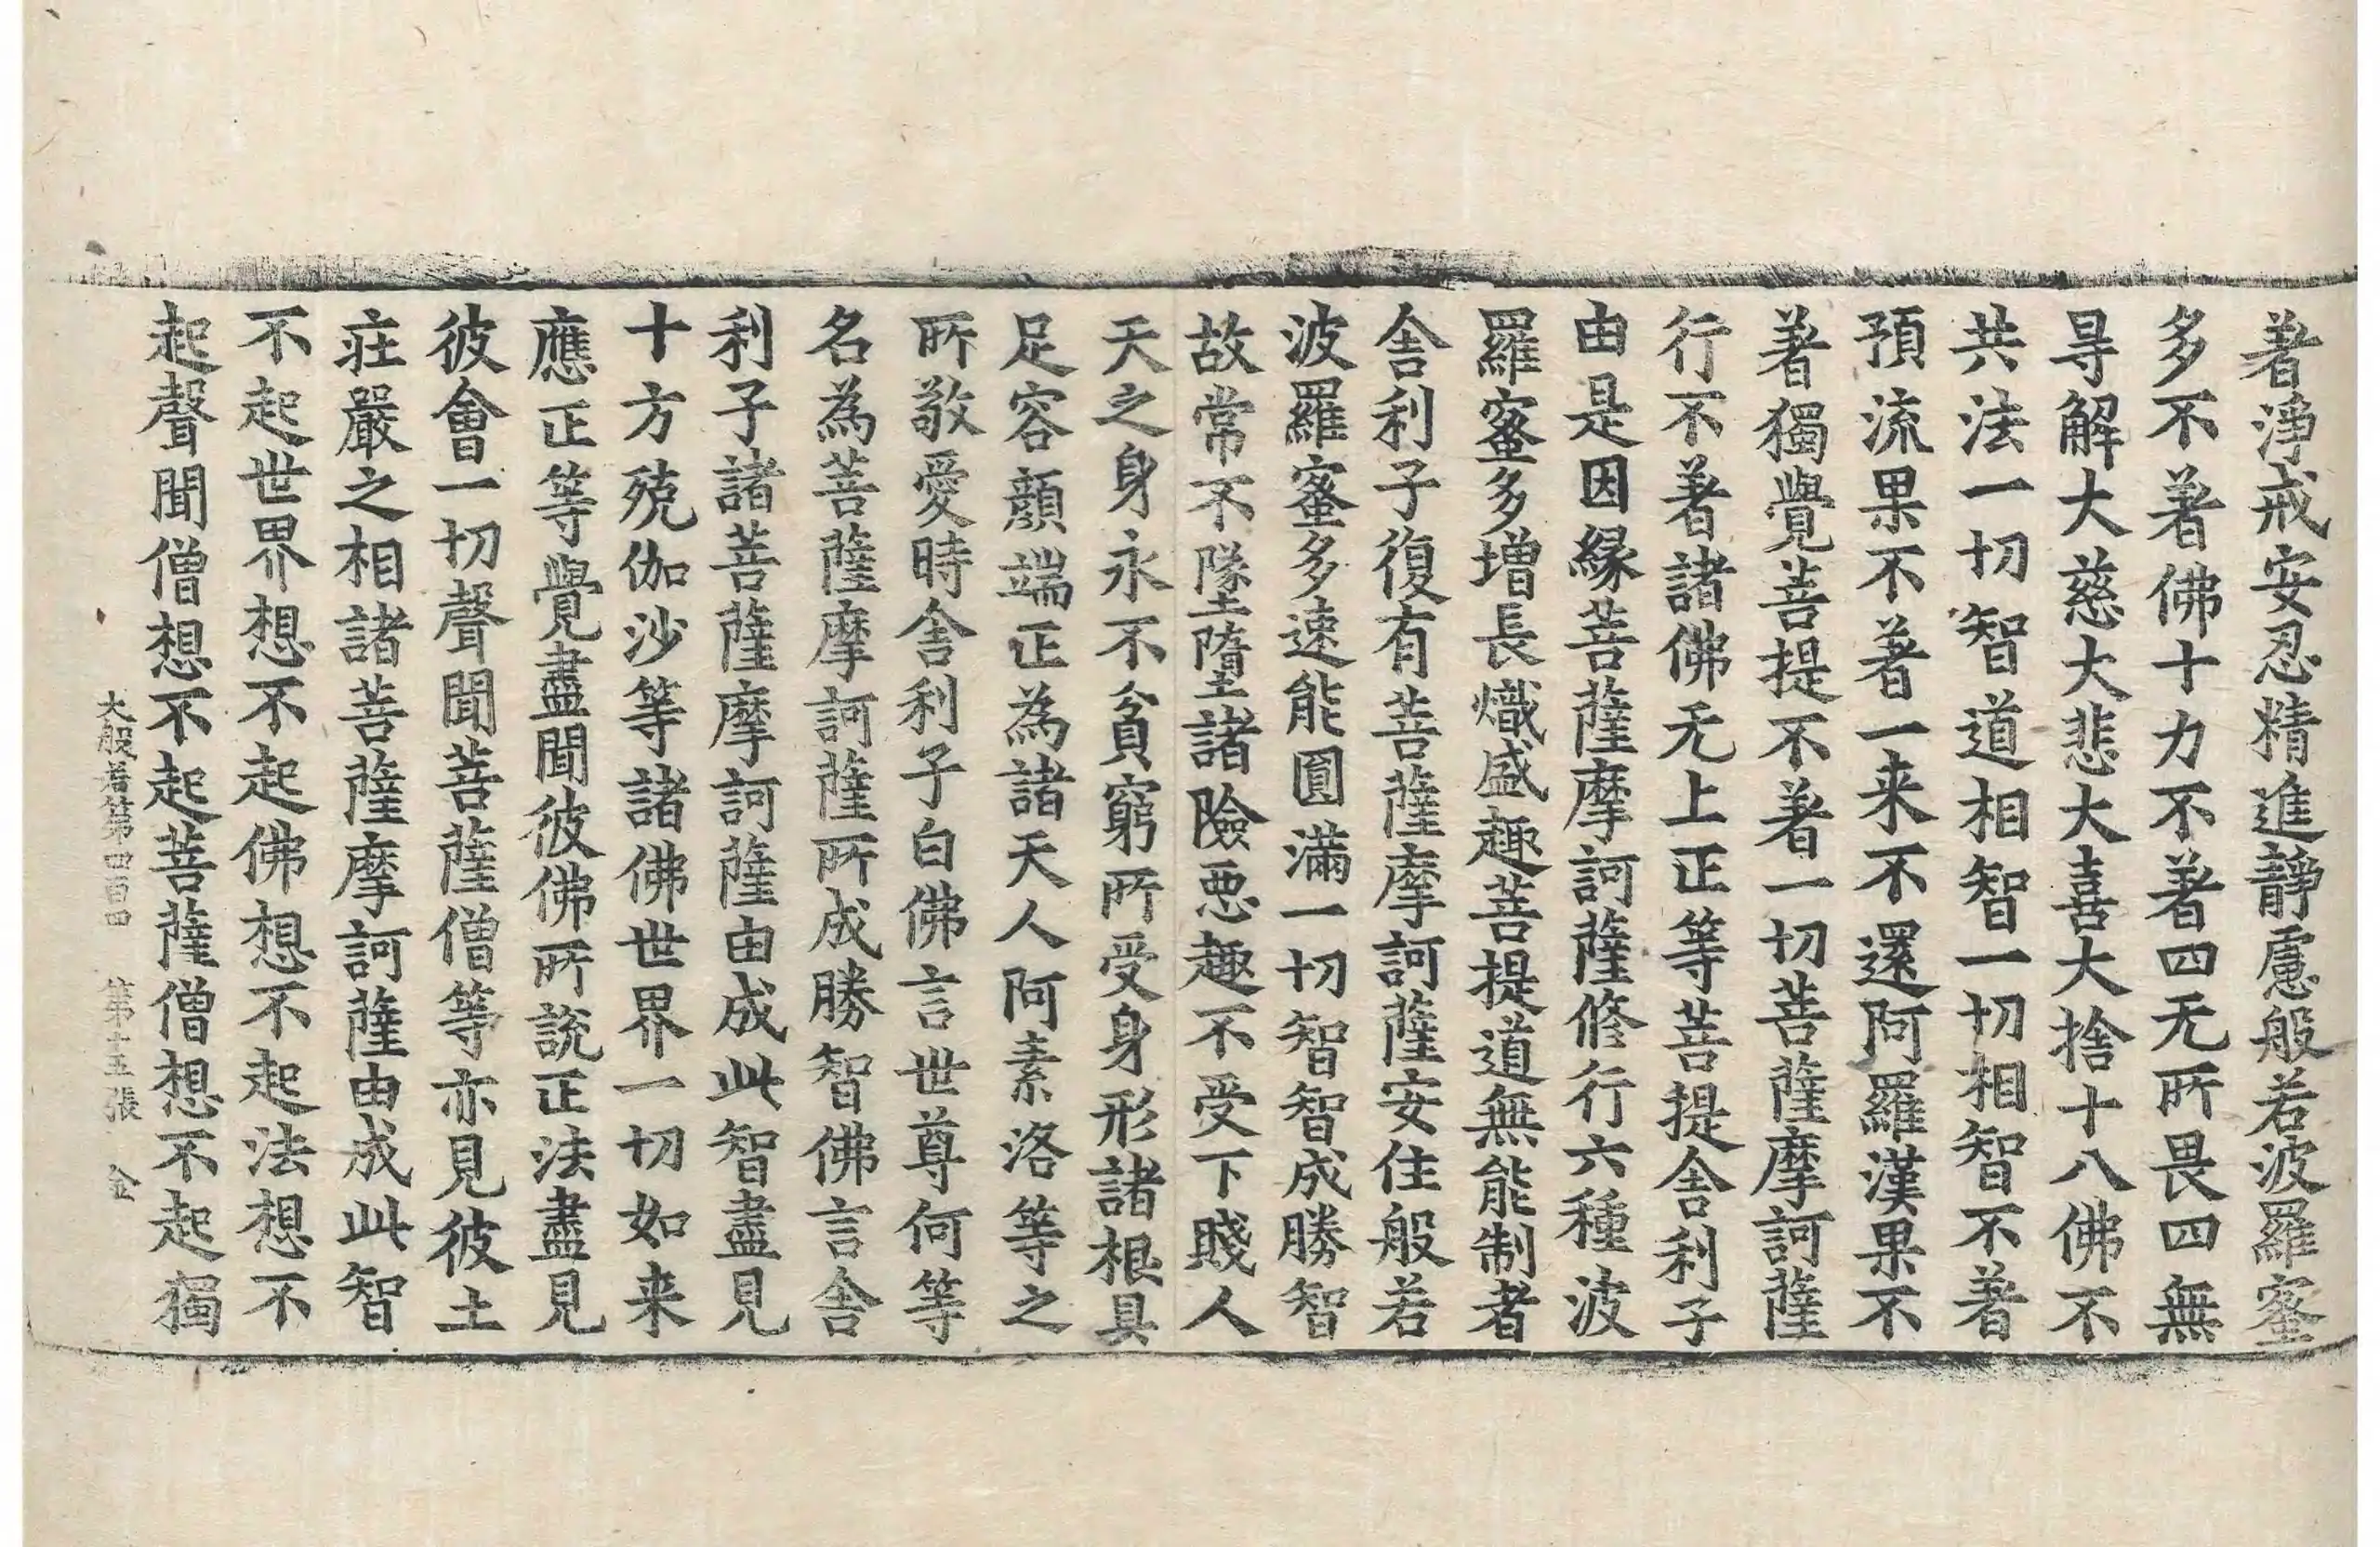 著淨戒安忍精進靜慮般若波羅蜜
多不著佛十力不著四无所畏四無
㝵解大慈大悲大喜大捨十八佛不
共法一切智道相智一切相智不著
預流果不著一来不還阿羅漢果不
著獨覺菩提不著一切菩薩摩訶薩
行不著諸佛无上正等菩提舍利子
由是因緣菩薩摩訶薩修行六種波
羅蜜多增長熾盛趣菩提道無能制者
舍利子復有菩薩摩訶薩安住般若
波羅蜜多速能圓滿一切智智成勝智
故常不墜墮諸險惡趣不受下賤人
天之身永不貧窮所受身形諸根具
足容顔端正為諸天人阿素洛等之
所敬愛時舍利子白佛言世尊何等
名為菩薩摩訶薩所成勝智佛言舍
利子諸菩薩摩訶薩由成此智盡見
十方殑伽沙等諸佛世界一切如来
應正等覺盡聞彼佛所說正法盡見
彼會一切聲聞菩薩僧等亦見彼土
莊嚴之相諸菩薩摩訶薩由成此智
不起世界想不起佛想不起法想不
起聲聞僧想不起菩薩僧想不起獨
大般若第四百四 第十五張 金